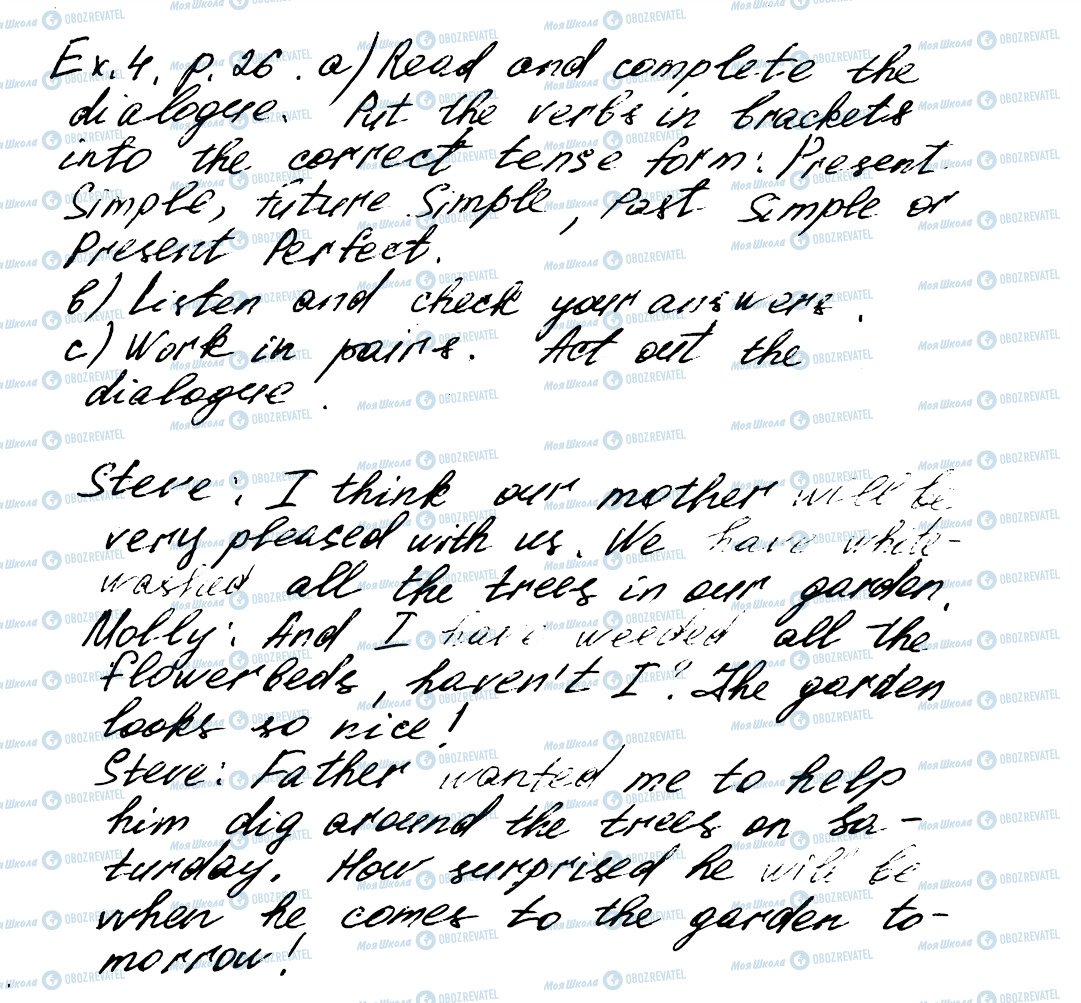 Ex. 4. p. 26. a) Read and complete the
dialogue. Put the verbs in brackets
into the correct tense form: Present
Simple, Future Simple, Past Simple or
Present Perfect.
b) Listen and check your answers.
c) Work in pairs. Act out the
dialogue.
Steve: I think our mother will be
very pleased with us. We have white-
washed all the trees in our garden.
Molly: And I have weeded all the
flowerbeds, haven't I? The garden
looks so nice!
Steve: Father wanted me to help
him dig around the trees on Sa-
turday. How surprised he will be
when he comes to the garden to-
morrow!
МояШкола OBOZREVATEL